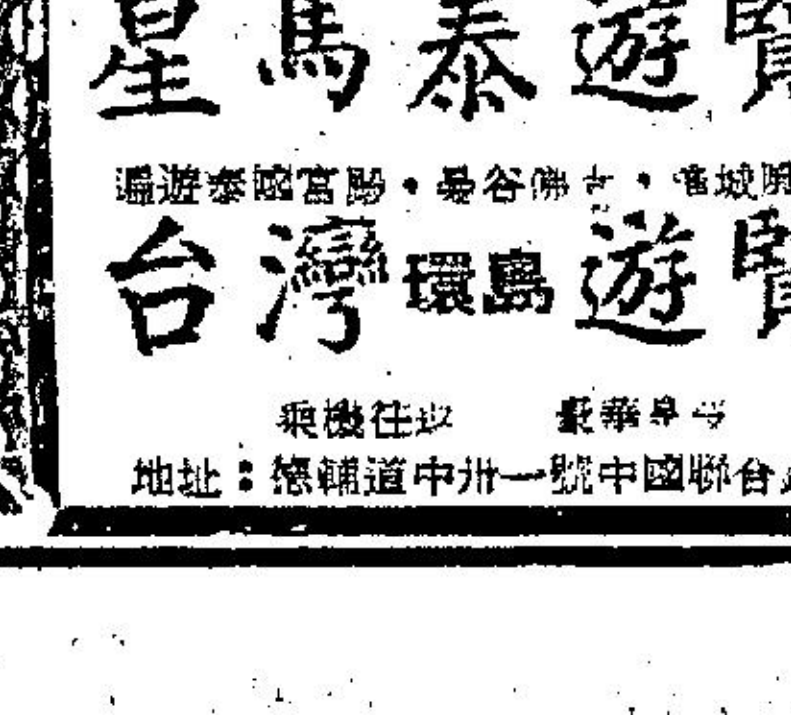 星馬泰遊覽
遍遊泰國宮殿・曼谷佛寺・舊城
台灣環島遊覽
乘機往返 豪華享受
地址：德輔道中卅一號中國聯合